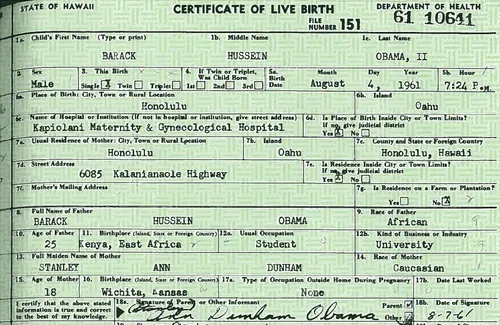 STATE OF HAWAII CERTIFICATE OF LIVE BIRTH DEPARTMENT OF HEALTH
FILE NUMBER 151 61 10641
1a. Child's First Name (Type or print) 1b. Middle Name 1c. Last Name
BARACK HUSSEIN OBAMA, II
2. Sex 3. This Birth 4. If Twin or Triplet, Was Child Born 5a. Birth Date Month Day Year 5b. Hour
Male Single X Twin Triplet 1st 2nd 3rd August 4, 1961 7:24 P.M.
6a. Place of Birth: City, Town or Rural Location 6b. Island
Honolulu Oahu
6c. Name of Hospital or Institution (If not in hospital or institution, give street address) 6d. Is Place of Birth Inside City or Town Limits? If no, give judicial district
Kapiolani Maternity & Gynecological Hospital Yes X No
7a. Usual Residence of Mother: City, Town or Rural Location 7b. Island 7c. County and State or Foreign Country
Honolulu Oahu Honolulu, Hawaii
7d. Street Address 7e. Is Residence Inside City or Town Limits? If no, give judicial district
6085 Kalanianaole Highway Yes X No
7f. Mother's Mailing Address 7g. Is Residence on a Farm or Plantation?
Yes No X
8. Full Name of Father 9. Race of Father
BARACK HUSSEIN OBAMA African
10. Age of Father 11. Birthplace (Island, State or Foreign Country) 12a. Usual Occupation 12b. Kind of Business or Industry
25 Kenya, East Africa Student University
13. Full Maiden Name of Mother 14. Race of Mother
STANLEY ANN DUNHAM Caucasian
15. Age of Mother 16. Birthplace (Island, State or Foreign Country) 17a. Type of Occupation Outside Home During Pregnancy 17b. Date Last Worked
18 Wichita, Kansas None
I certify that the above stated information is true and correct to the best of my knowledge. 18a. Signature of Parent or Other Informant Parent Other 18b. Date of Signature
Dunham Obama 8-7-61